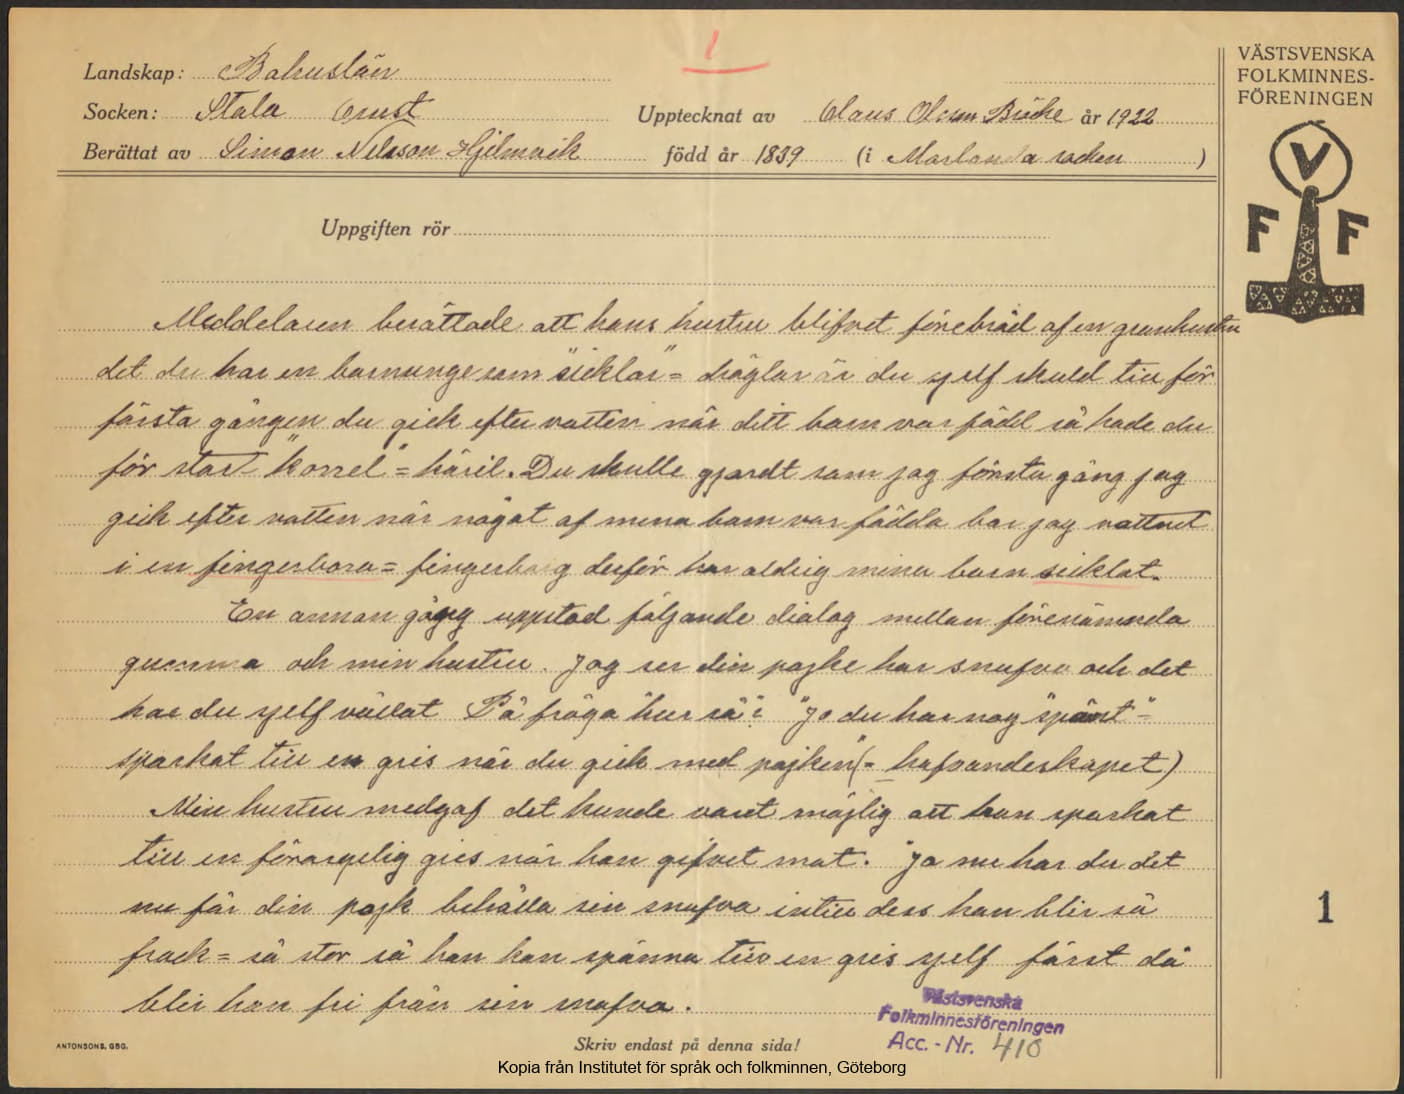 1
Landskap: Bohuslän
Socken: Stala Orust
Upptecknat av Claus Olsson Bücke år 1922
Berättat av Simon Nilsson Hjelmvik född år 1839 (i Morlanda socken)
VÄSTSVENSKA
FOLKMINNES-
FÖRENINGEN
V
F F
Uppgiften rör
Meddelaren berättade att hans hustru blifvet förebråd af en grannhustru
det du har en barnunge som "sicklar" = dräglar är du sjelf skuld till för
första gången du gick efter vatten när ditt barn var född så hade du
för stort "korrel" = käril. Du skulle gjordt som jag första gång jag
gick efter vatten när något af mina barn var födda bar jag vattnet
i en fingerbora = fingerborg derför har aldrig mina barn sicklat.
En annan gång uppstod följande dialog mellan förenämnda
gumma och min hustru. Jag ser din pojke har snufva och det
har du sjelf vållat På fråga "hur så"? "Jo du har nog "spänt" =
sparkat till en gris när du gick med pojken" (= hafvandeskapet)
Min hustru medgaf det kunde varet möjlig att hon sparkat
till en förargelig gris när hon gifvet mat. "Ja nu har du det
nu får din pojk behålla sin snufva intill dess han blir så
frack = så stor så han kan spänna till en gris sjelf först då
blir han fri från sin snufva.
1
Västsvenska
Folkminnesföreningen
Acc.-Nr. 410
ANTONSONS, GBG.
Skriv endast på denna sida!
Kopia från Institutet för språk och folkminnen, Göteborg